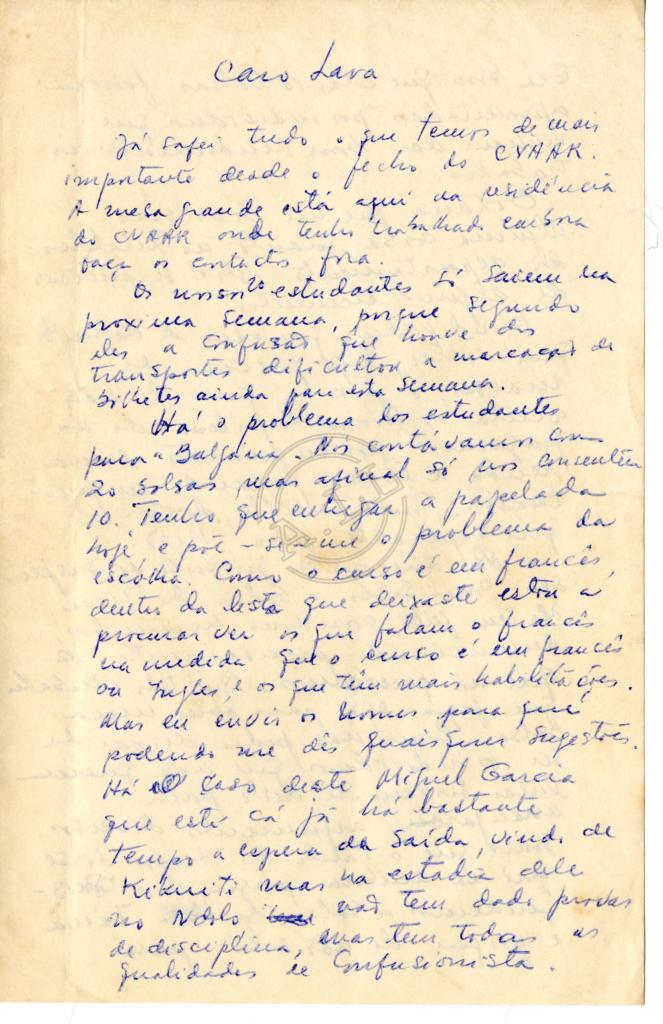 Caro Lara
Já safei tudo o que temos de mais
importante desde o fecho do CVAAR.
A mesa grande está aqui na residência
do CVAAR onde tenho trabalhado embora
faça os contactos fora.
Os nossos 20 estudantes só saiem na
proxima semana, porque segundo
eles a confusão que houve dos
transportes dificultou a marcação de
bilhetes ainda para esta semana.
Há o problema dos estudantes
para a Bulgária. Nós contávamos com
20 bolsas, mas afinal só nos consentem
10. Tenho que entregar a papelada
hoje e põe-se-me o problema da
escolha. Como o curso é em francês,
dentro da lista que deixaste estou a
procurar ver os que falam o francês
na medida que o curso é em francês
ou Inglês, e os que têm mais habilitações.
Mas eu envio os nomes para que
podendo me dês quaisquer sugestões.
Há o caso deste Miguel Garcia
que está cá já há bastante
tempo a espera da saída, vindo de
Kikwiti mas na estadia dele
no Ndolo não tem dado provas
de disciplina, mas tem todas as
qualidades de confusionista.